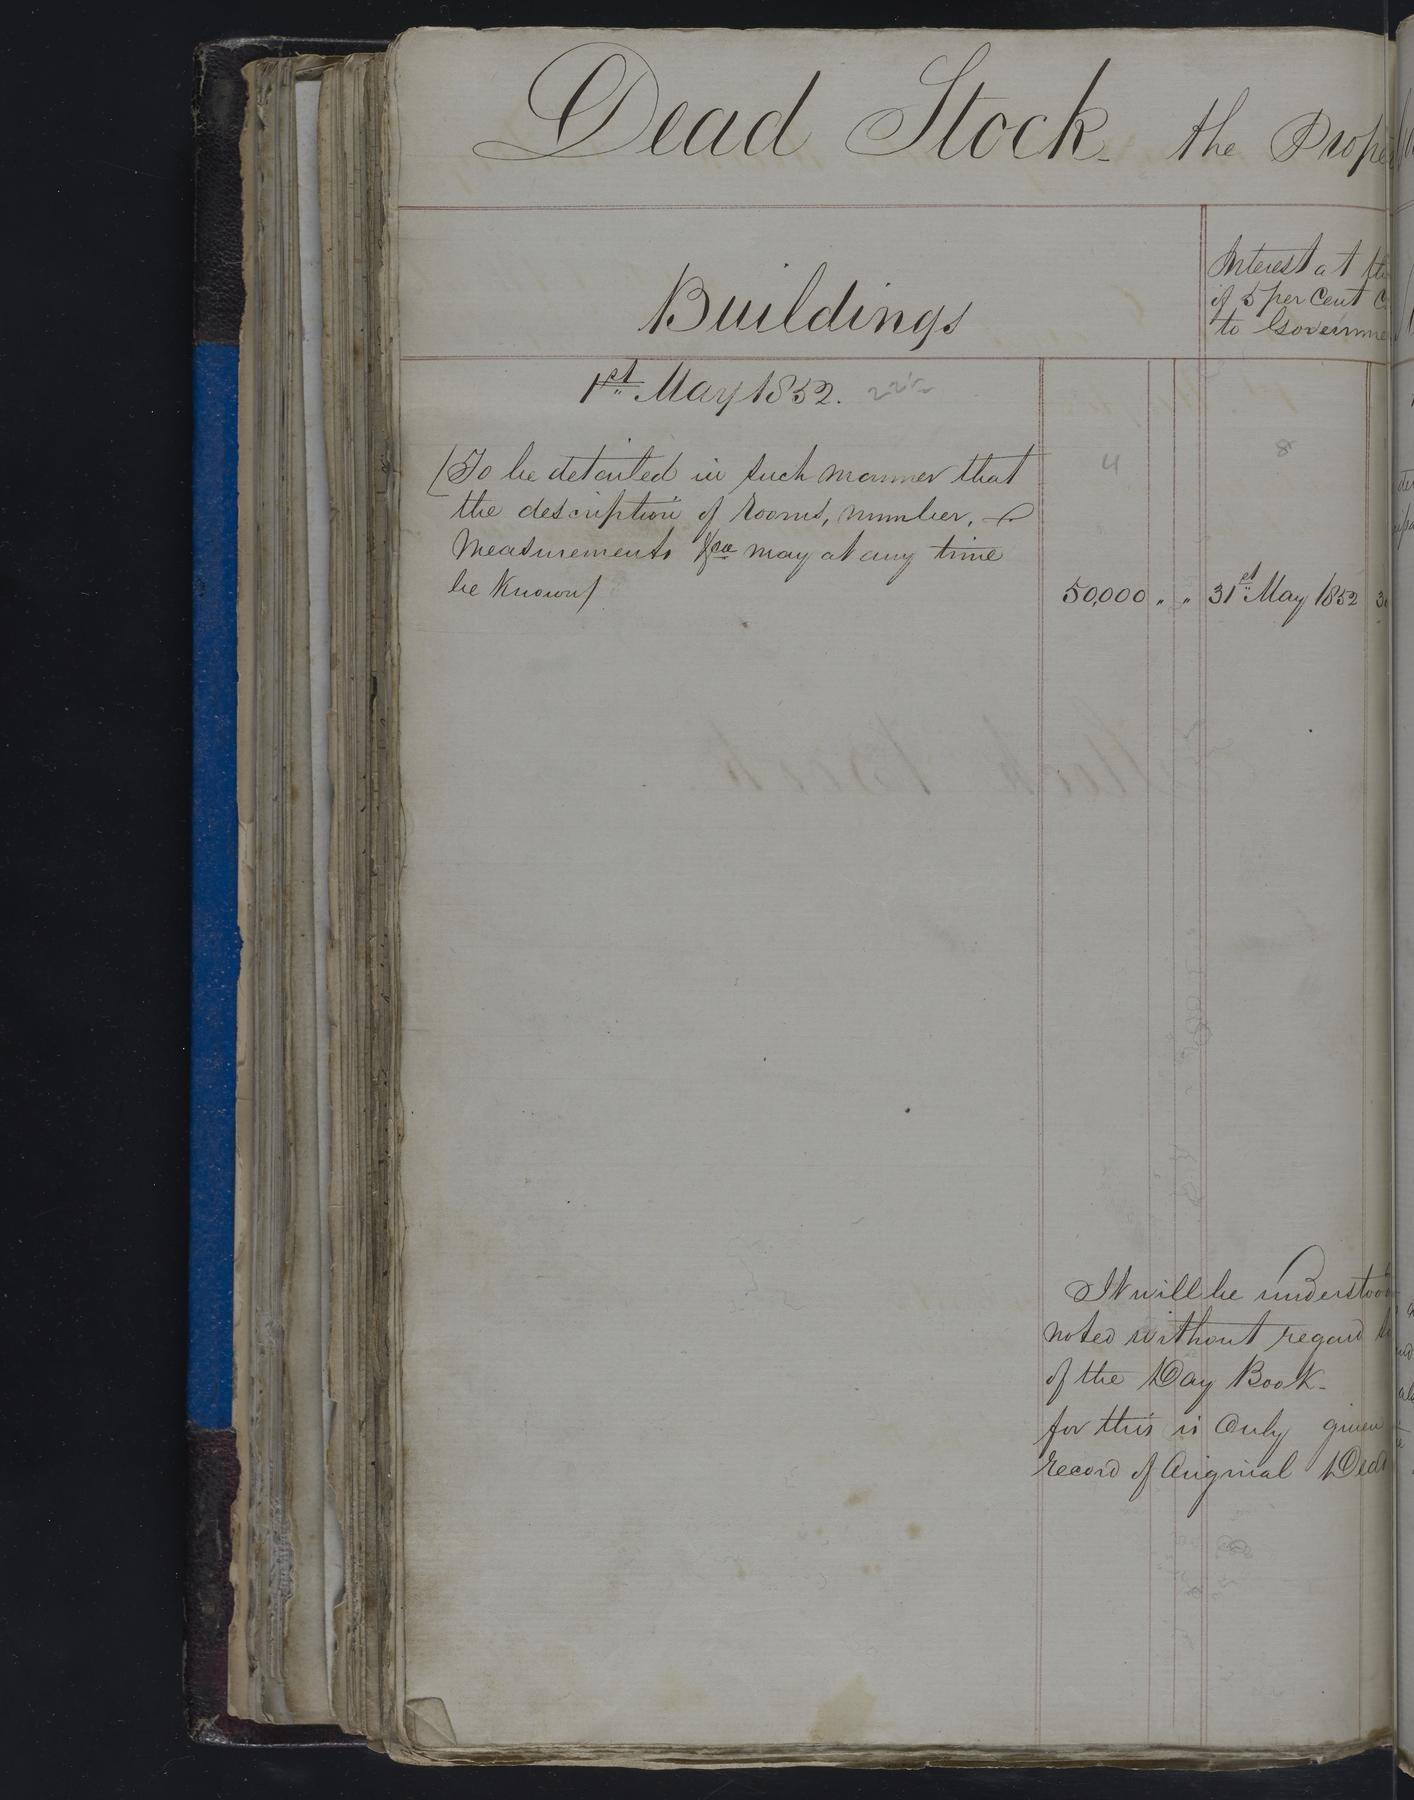 Dead Stock the Prope
Buildings
Interest at th
of 5 per Cent C
to Governme
1st May 1852.
4
8
(To be detailed in such manner that
the description of rooms, number, &
Measurements &ca may at any time
be Known)
50,000 " " 31st May 1852 3
It will be understood
noted without regard to
of the Day Book-
for this is Only given
record of Original Dead